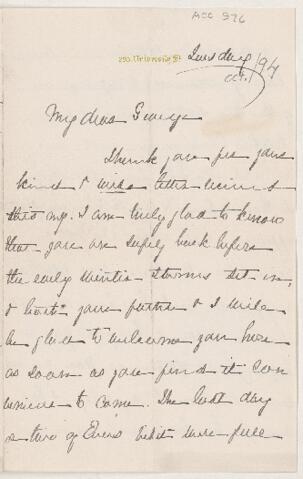 ACC 976
Tuesday
Oct. 1/94
My dear George
Thank you for your
kind & wise letter received
this mg. I am truly glad to know
that you are safely back before
the early winter storms set in,
& both your father & I will
be glad to welcome you here
as soon as you find it con
venient to come. The last day
or two of Evie's visit were full